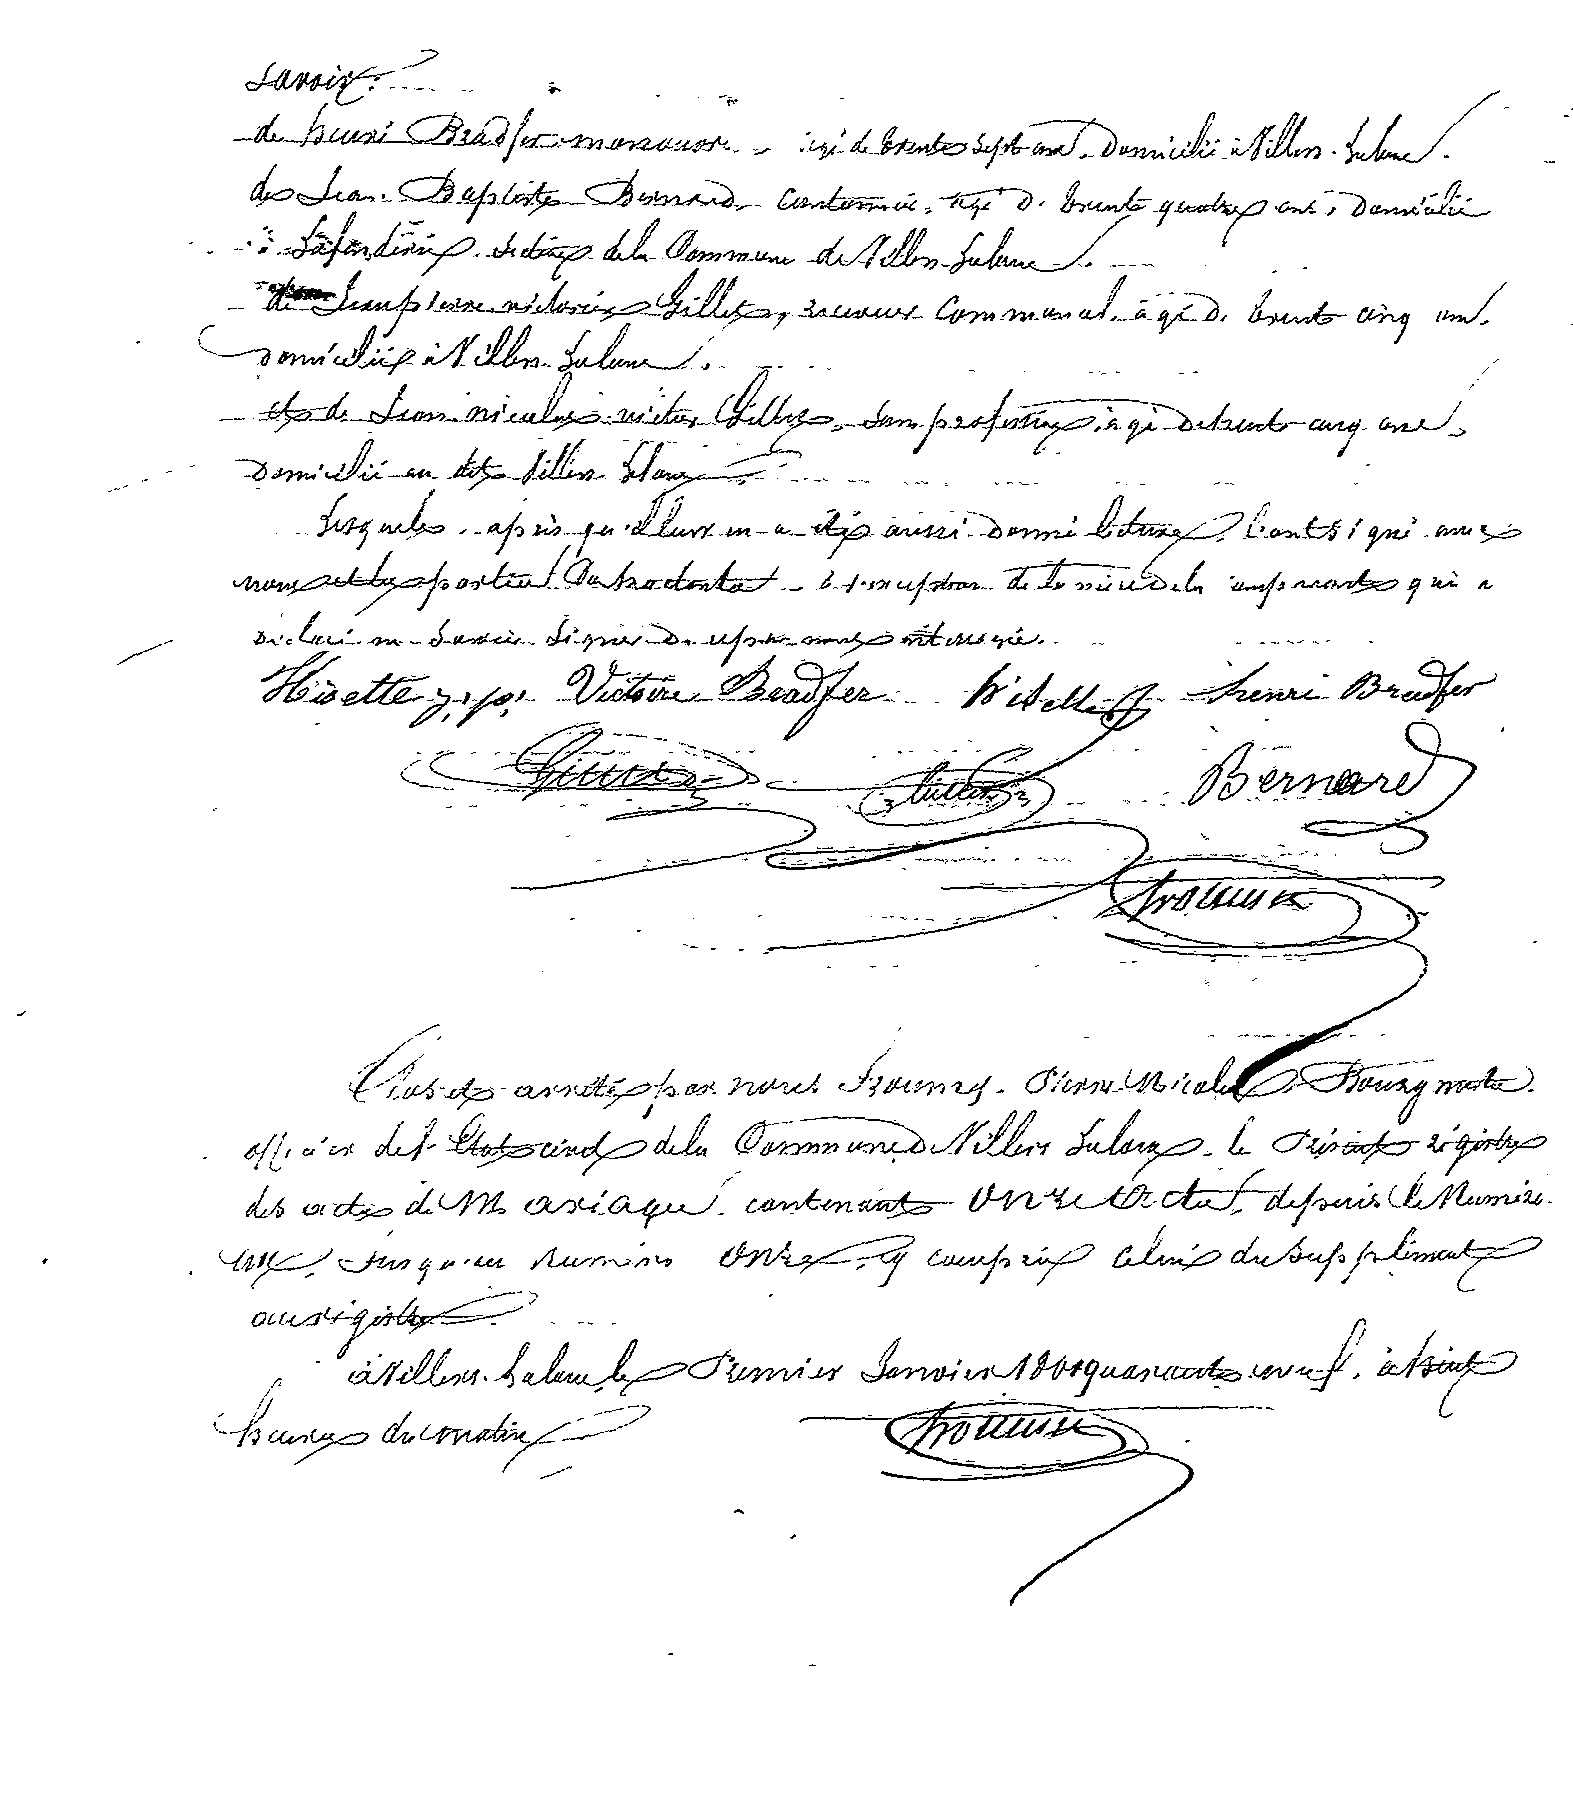 Savoir.
de henri Bradfer manœuvre âgé de trente sept ans. Domicilié à Villers-Laloue.
de Jean-Baptiste Bernard, cantonnier, âgé de trente quatre ans, Domicilié
à section de la Commune de Villers-Laloue.
de Jean pierre victoire Gillet, receveur Communal, âgé de trente cinq ans.
domicilié à Villers-Laloue.
et de Jean nicolas victor Gillet, sans profession, âgé de trente cinq ans,
Domicilié au dit Villers-Laloue.
Lesquels, après qu'il leur en a été aussi donné lecture, l'ont signé avec
nous et les parties Contractantes à l'exception de la mère de la qui a
déclaré ne savoir signer de ce par nous interrogée.
Victoire Bradfer henri Bradfer
Bernard
Clos et arrêté par nous Pierre Nicolas Bourgmestre
officier de l'Etat civil de la Commune de Villers Laloue, le Présent registre
des actes de Mariage contenant onze Actes, depuis le Numéro
un, Jusqu'au Numéro onze, y compris celui du supplément
au registre.
à Villers-Laloue, le Premier Janvier 18 quarante neuf, à
heures du matin